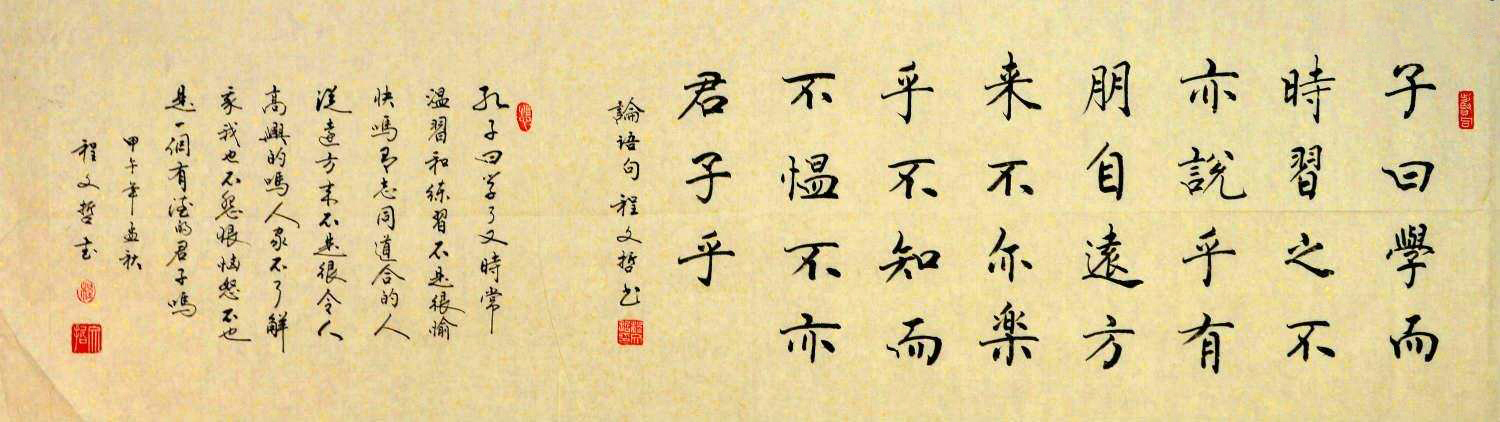 子曰學而
時習之不
亦説乎有
朋自遠方
来不尔楽
乎不知而
不愠不亦
君子乎
論语句 程文哲书
孔子曰学了又時常
温習和練習不是很愉
快嗎有志同道合的人
從遠方来不是很令人
高興的嗎人家不了解
家我也不怨恨恼怒不也
是一個有德的君子嗎
甲午年孟秋
程文哲书